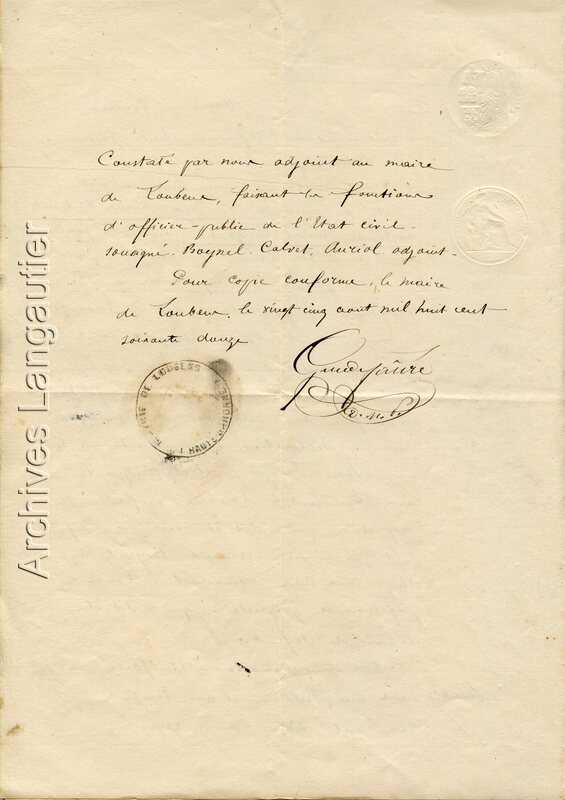 Constaté par nous adjoint au maire
de Loubens, faisant les fonctions
d'officier public de l'Etat civil.
soussigné. Boysel. Calvet. Auriol adjoint.
Pour copie conforme, le maire
de Loubens, le vingt cinq aout mil huit cent
soixante douze
MAIRIE DE LOUBENS
HAUTE-GARONNE
Archives Langautier